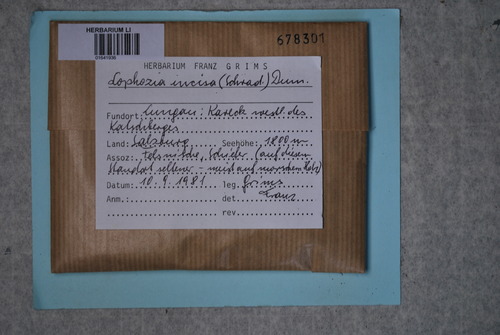 HERBARIUM LI
678301
HERBARIUM FRANZ GRIMS
Lophozia incisa (Schrad.) Dum.
Fundort: Lungau: Kareck nördl. des
Katschberges
Land: Salzburg Seehöhe: 1800 m
Assoz: Felsnische, Schiefer (auf diesem
Standort seltener - meist auf morschem Holz)
Datum: 10. 9. 1981 leg. Grims
Anm.: det. Franz
rev.